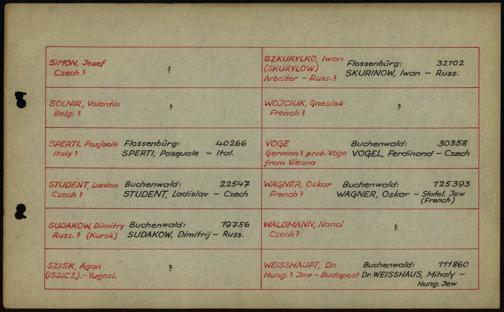 SIMON, Josef
Czech ?
?
SOLNIR, Valentin
Belg. ?
?
SPERTI, Pasjaele
Italy ?
Flossenbürg: 40266
SPERTI, Pasquale - Ital.
STUDENT, Lanien
Czech ?
Buchenwald: 22547
STUDENT, Ladislav - Czech
SUDAKOW, Dimitry
Russ. ? (Kursk)
Buchenwald: 19756
SUDAKOW, Dimitrij - Russ.
SZISK, Agan
(ISZICZ).- Yugosl.
?
SZKURYLKO, Iwan
(SKURYLOW)
Arbeiter - Russ. ?
Flossenbürg: 32102
SKURINOW, Iwan - Russ.
WOJCIUK, Gnesiak
French ?
?
VOGE
German ? prob. Voge
from Vienna
Buchenwald: 30358
VOGEL, Ferdinand - Czech
WAGNER, Oskar
French ?
Buchenwald: 125393
WAGNER, Oskar - Statel. Jew
(French)
WALDMANN, Nanci
Czech ?
?
WEISSHAUPT, Dr.
Hung. ? Jew - Budapest
Buchenwald: 111860
Dr. WEISSHAUS, Mihaly -
Hung. Jew